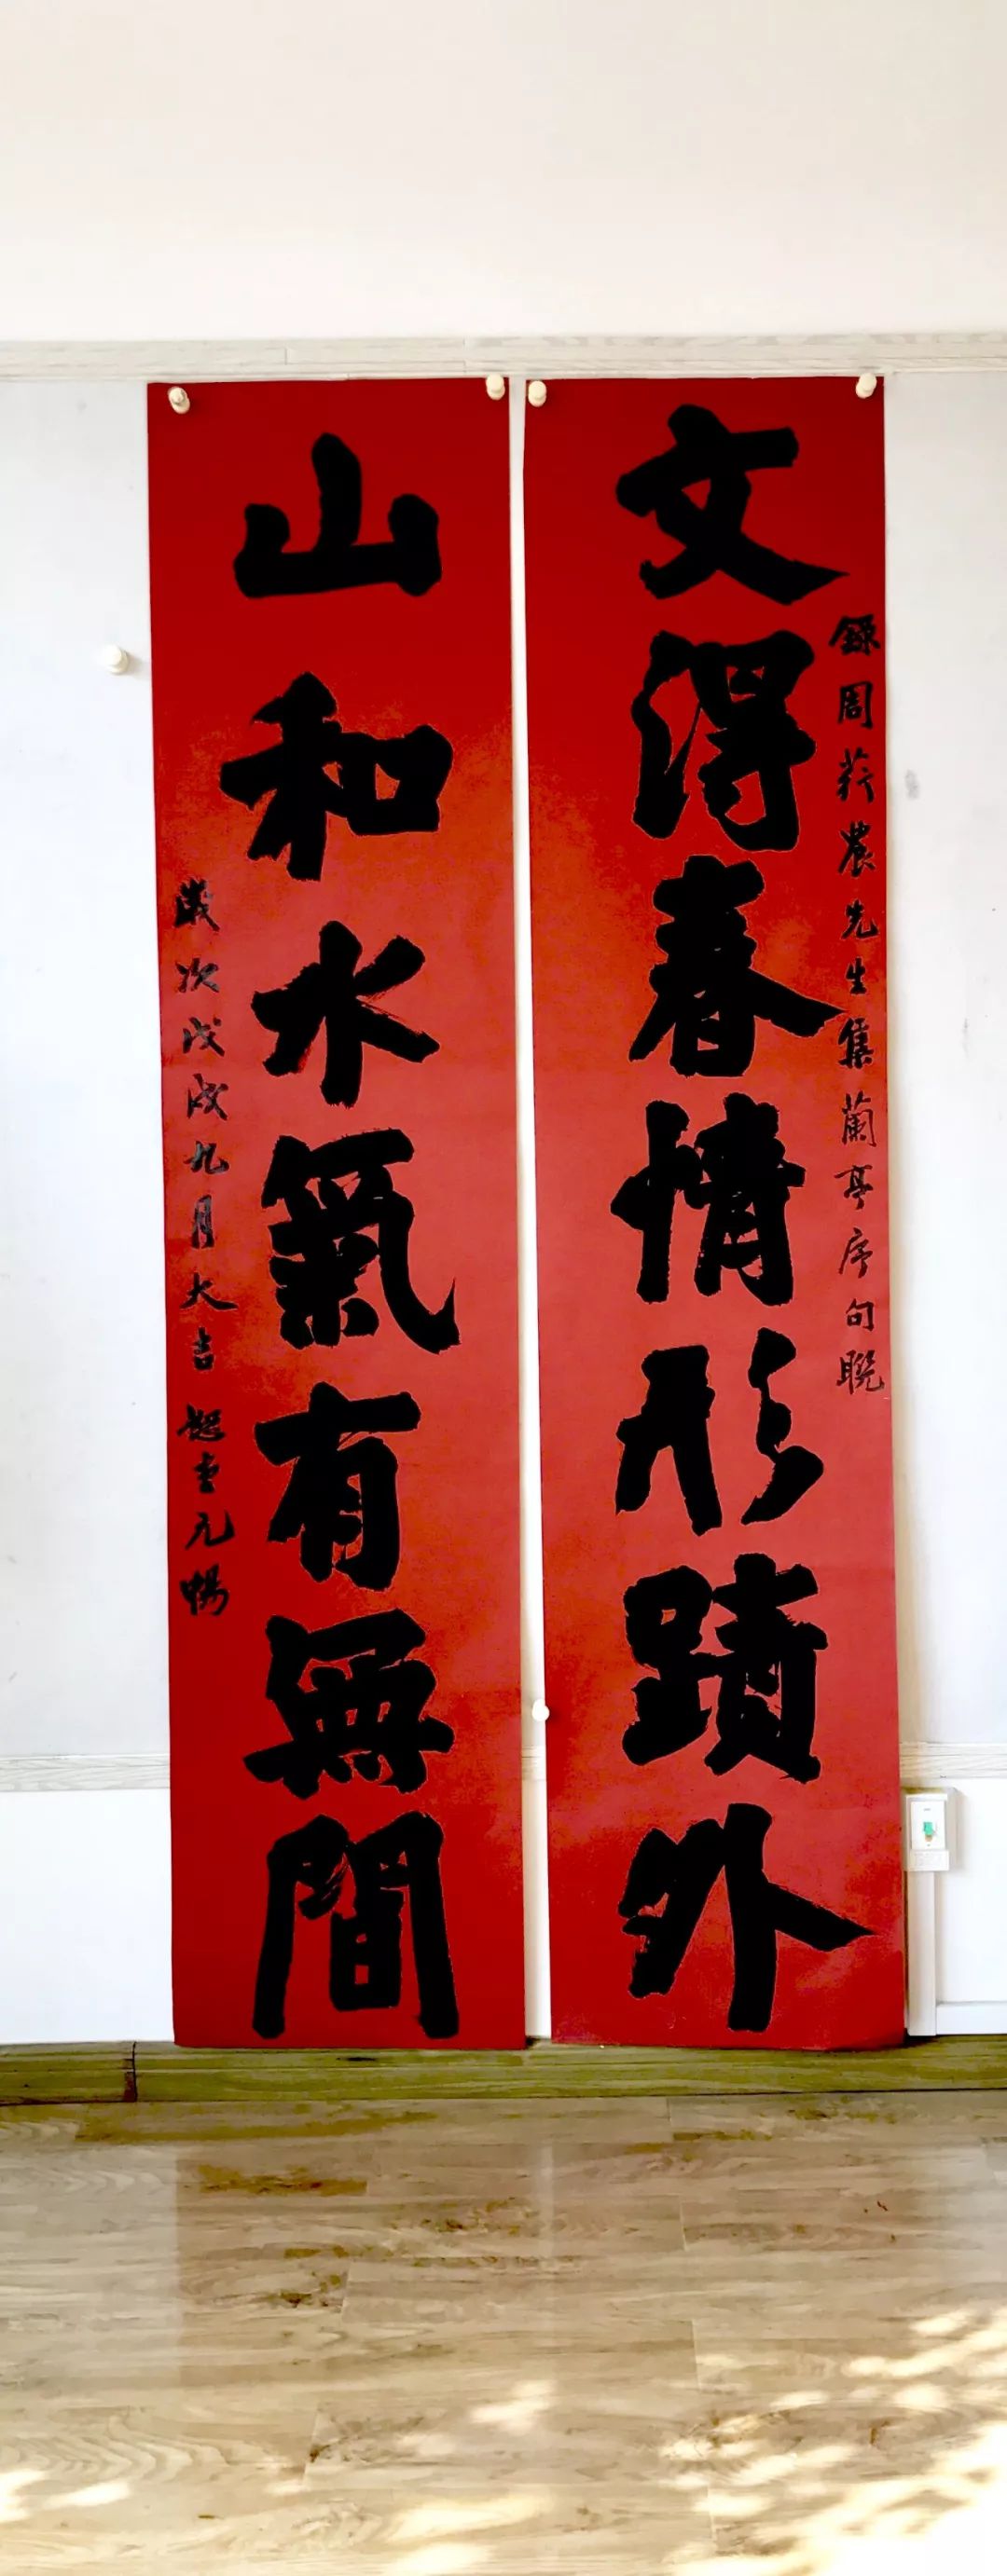 文得春情形蹟外
錄周菸農先生集蘭亭序句聯
山和水氣有無間
歲次戊戌九月大吉 元暢